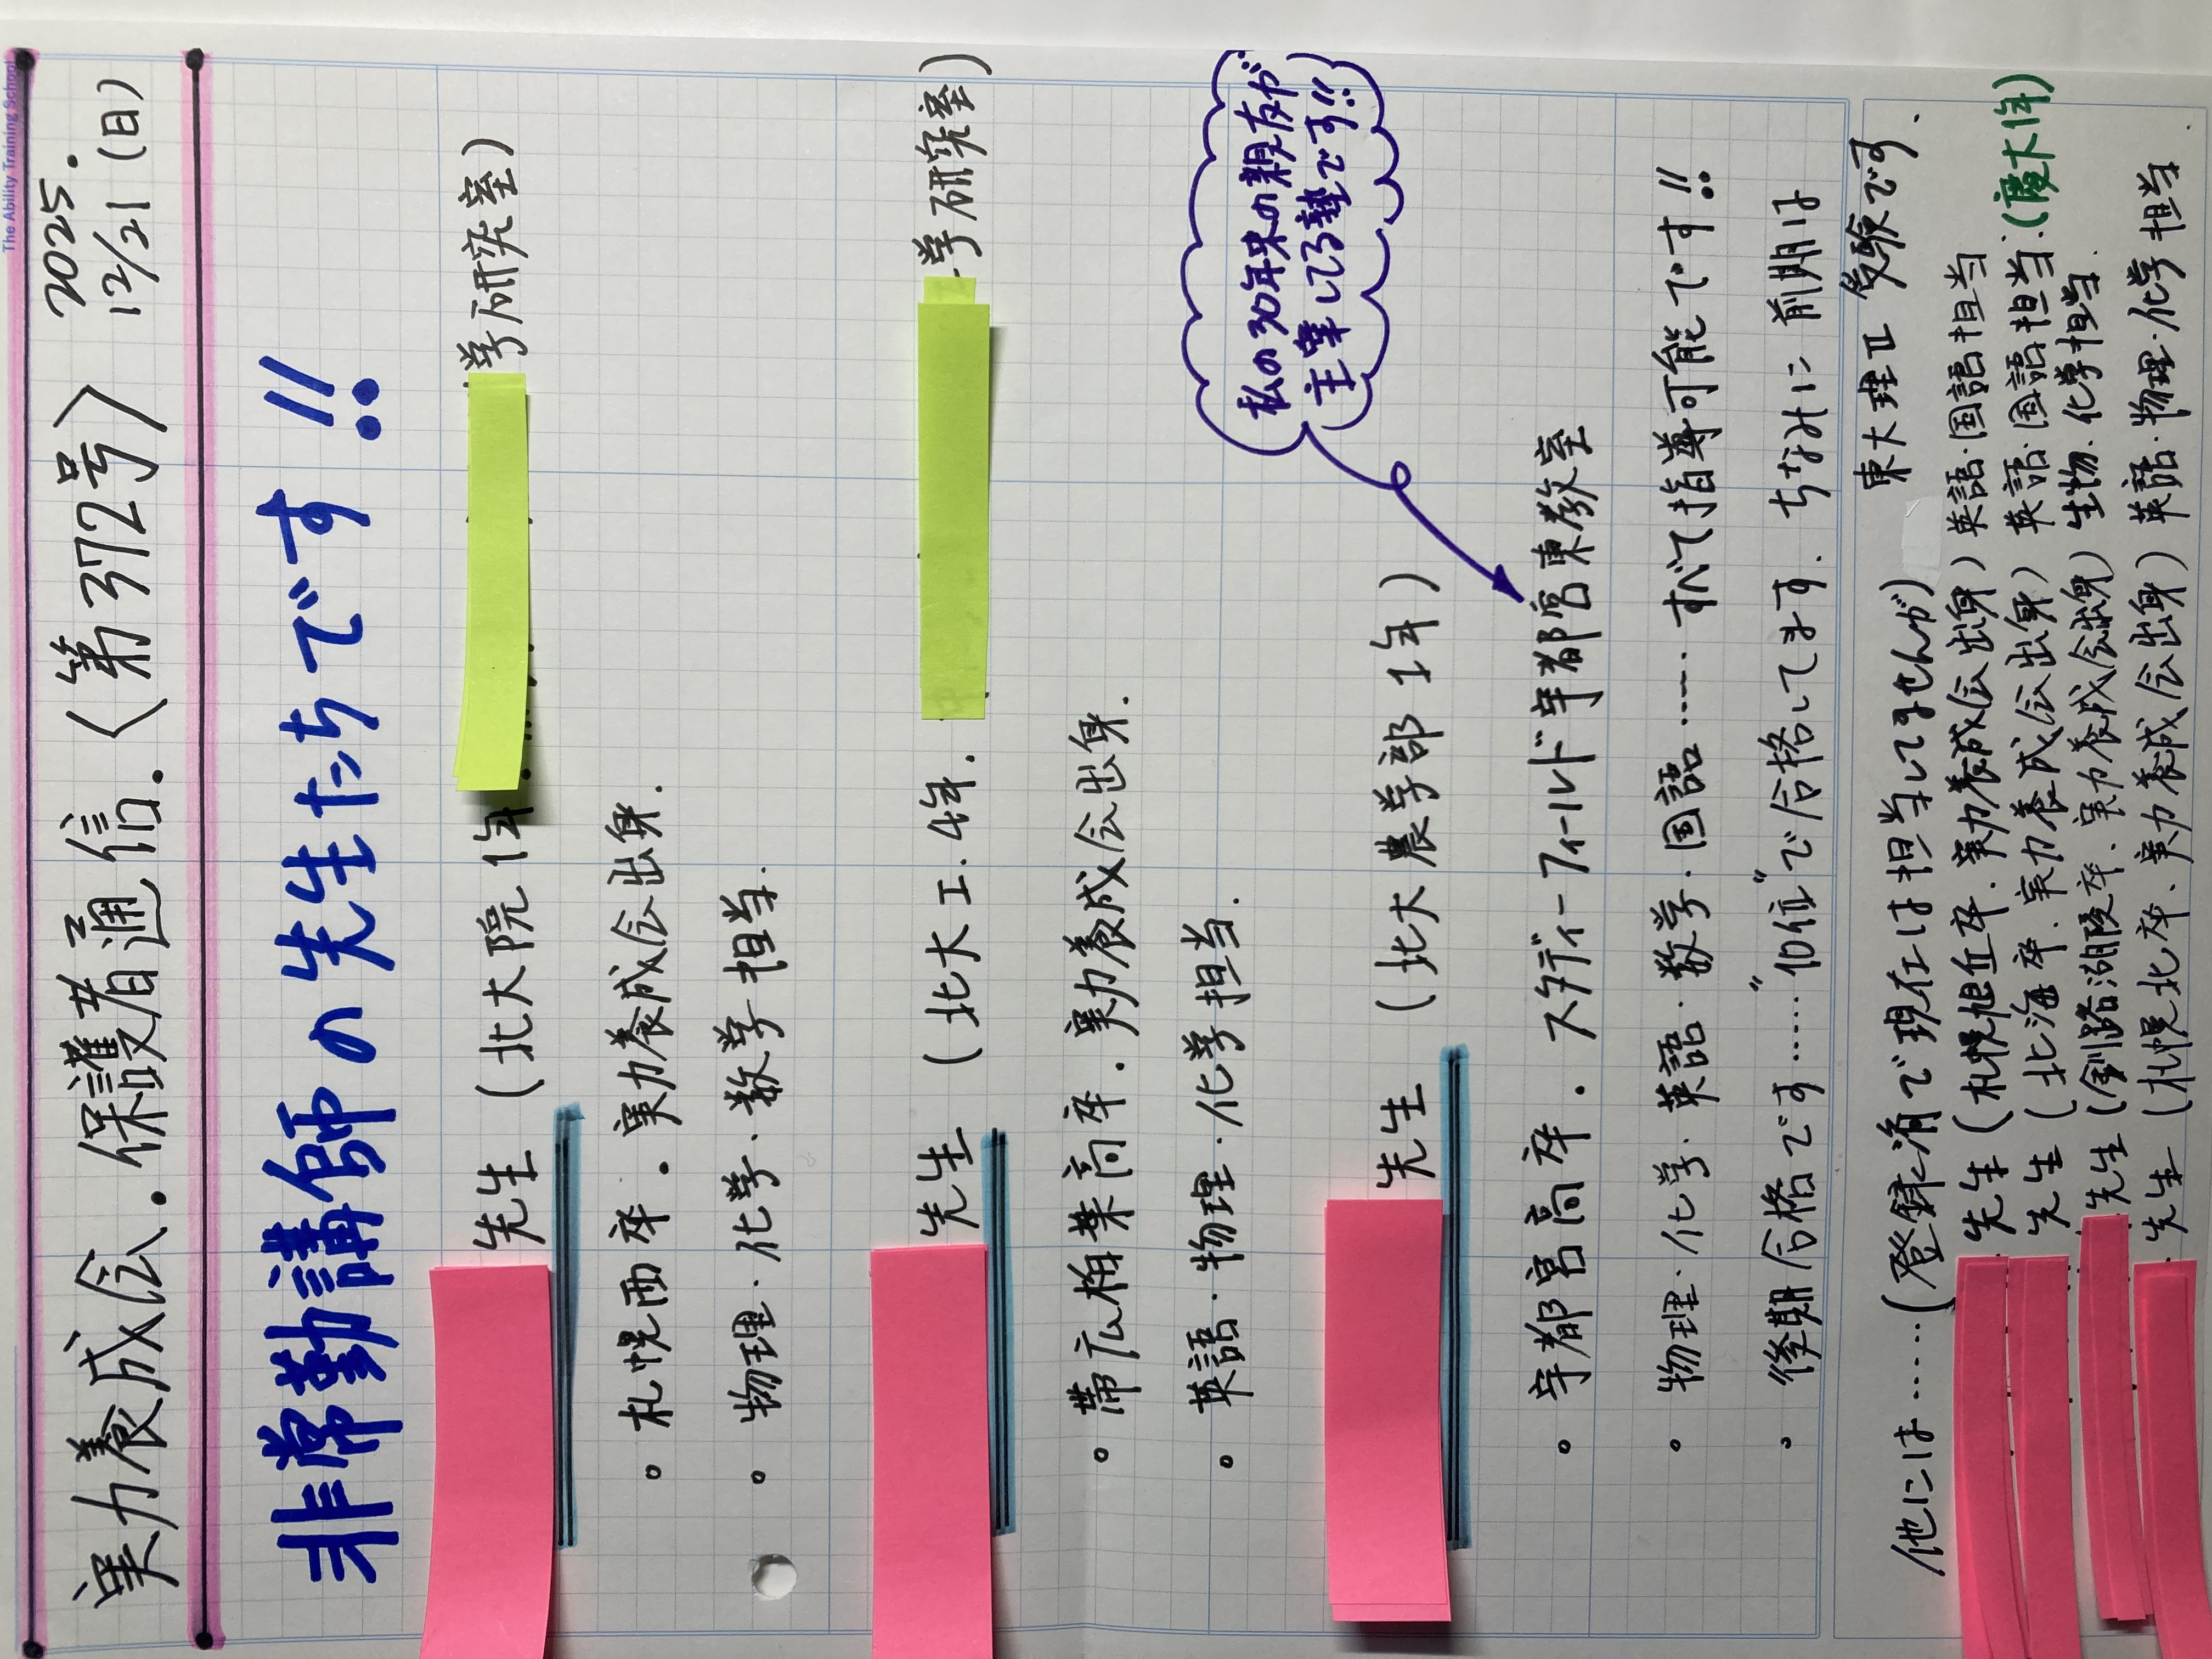 The Ability Training School
実力養成会.保護者通信.〈第372号〉 2025.
12/21(日)
非常勤講師の先生たちです!!
先生(北大院1年 学研究室)
。札幌西卒.実力養成会出身.
。物理.化学.数学担当.
先生(北大工.4年. 学研究室)
。帯広柏葉高卒.実力養成会出身.
。英語.物理.化学担当.
私の30年来の親友が
主宰してる塾です!!
先生(北大農学部1年)
。宇都宮高卒.スタディーフィールド宇都宮東教室
。物理.化学.英語.数学.国語……すべて指導可能です!!
。後期合格です……"10位"で合格してます.ちなみに前期は
東大理Ⅱ受験です.
他には……(登録済で現在は担当してませんが)
先生(札幌旭丘卒.実力養成会出身)英語.国語担当
先生(北海卒.実力養成会出身)英語.国語担当.(慶大1年)
先生(釧路湖陵卒、実力養成会出身)生物.化学担当.
先生(札幌北卒、実力養成会出身)英語.物理.化学担当.